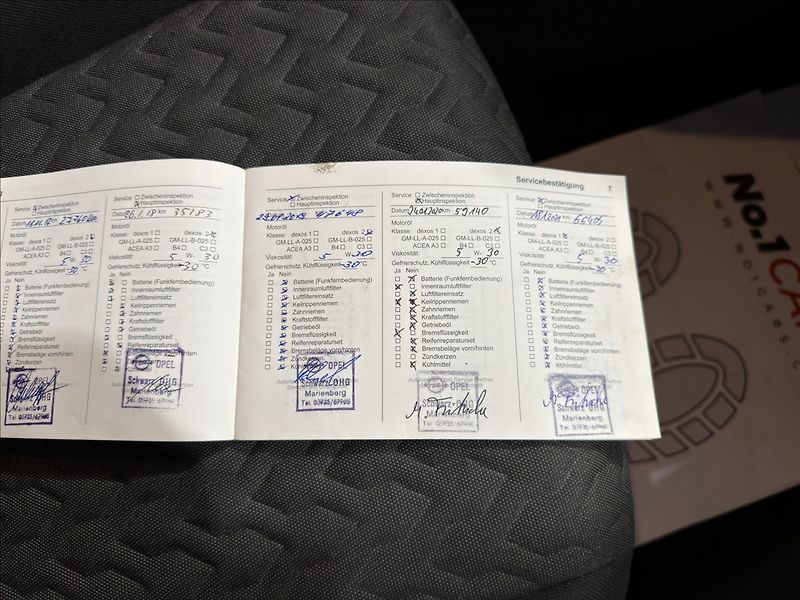 Servicebestätigung 7
Service: Zwischeninspektion
Hauptinspektion
Datum km 27760
Motoröl
Klasse: dexos 1 dexos 2
GM-LL-A-025 GM-LL-B-025
ACEA A3 B4 C3
Viskosität: 5 W- 30
Gefrierschutz, Kühlflüssigkeit -30 °C
Ja Nein
Batterie (Funkfernbedienung)
Innenraumluftfilter
Luftfiltereinsatz
Keilrippenriemen
Zahnriemen
Kraftstofffilter
Getriebeöl
Bremsflüssigkeit
Reifenreparaturset
Bremsbeläge vorn/hinten
Zündkerzen
OPEL
Schwarz OHG
Marienberg
Tel. 03735/67960
Service: Zwischeninspektion
Hauptinspektion
Datum 26.1.18 km 35183
Motoröl
Klasse: dexos 1 dexos 2
GM-LL-A-025 GM-LL-B-025
ACEA A3 B4 C3
Viskosität: 5 W- 30
Gefrierschutz, Kühlflüssigkeit -30 °C
Ja Nein
Batterie (Funkfernbedienung)
Innenraumluftfilter
Luftfiltereinsatz
Keilrippenriemen
Zahnriemen
Kraftstofffilter
Getriebeöl
Bremsflüssigkeit
Reifenreparaturset
Bremsbeläge vorn/hinten
OPEL
Schwarz OHG
Marienberg
Tel. 03735/67960
Service: Zwischeninspektion
Hauptinspektion
47648
Motoröl
Klasse: dexos 1 dexos 2
GM-LL-A-025 GM-LL-B-025
ACEA A3 B4 C3
Viskosität: 5 W- 30
Gefrierschutz, Kühlflüssigkeit -30 °C
Ja Nein
Batterie (Funkfernbedienung)
Innenraumluftfilter
Luftfiltereinsatz
Keilrippenriemen
Zahnriemen
Kraftstofffilter
Getriebeöl
Bremsflüssigkeit
Reifenreparaturset
Bremsbeläge vorn/hinten
Zündkerzen
Kühlmittel
OPEL
Schwarz OHG
Marienberg
Tel. 03735/67960
Service: Zwischeninspektion
Hauptinspektion
Datum 24.01.2020 km 59140
Motoröl
Klasse: dexos 1 dexos 2
GM-LL-A-025 GM-LL-B-025
ACEA A3 B4 C3
Viskosität: 5 W- 30
Gefrierschutz, Kühlflüssigkeit -30 °C
Ja Nein
Batterie (Funkfernbedienung)
Innenraumluftfilter
Luftfiltereinsatz
Keilrippenriemen
Zahnriemen
Kraftstofffilter
Getriebeöl
Bremsflüssigkeit
Reifenreparaturset
Bremsbeläge vorn/hinten
Zündkerzen
Kühlmittel
OPEL
Schwarz OHG
Marienberg
Tel. 03735/67960
Service: Zwischeninspektion
Hauptinspektion
Datum km 66405
Motoröl
Klasse: dexos 1 dexos 2
GM-LL-A-025 GM-LL-B-025
ACEA A3 B4 C3
Viskosität: 5 W- 30
Gefrierschutz, Kühlflüssigkeit -30 °C
Ja Nein
Batterie (Funkfernbedienung)
Innenraumluftfilter
Luftfiltereinsatz
Keilrippenriemen
Zahnriemen
Kraftstofffilter
Getriebeöl
Bremsflüssigkeit
Reifenreparaturset
Bremsbeläge vorn/hinten
Zündkerzen
Kühlmittel
OPEL
Schwarz OHG
Marienberg
Tel. 03735/67960
No.1 CA